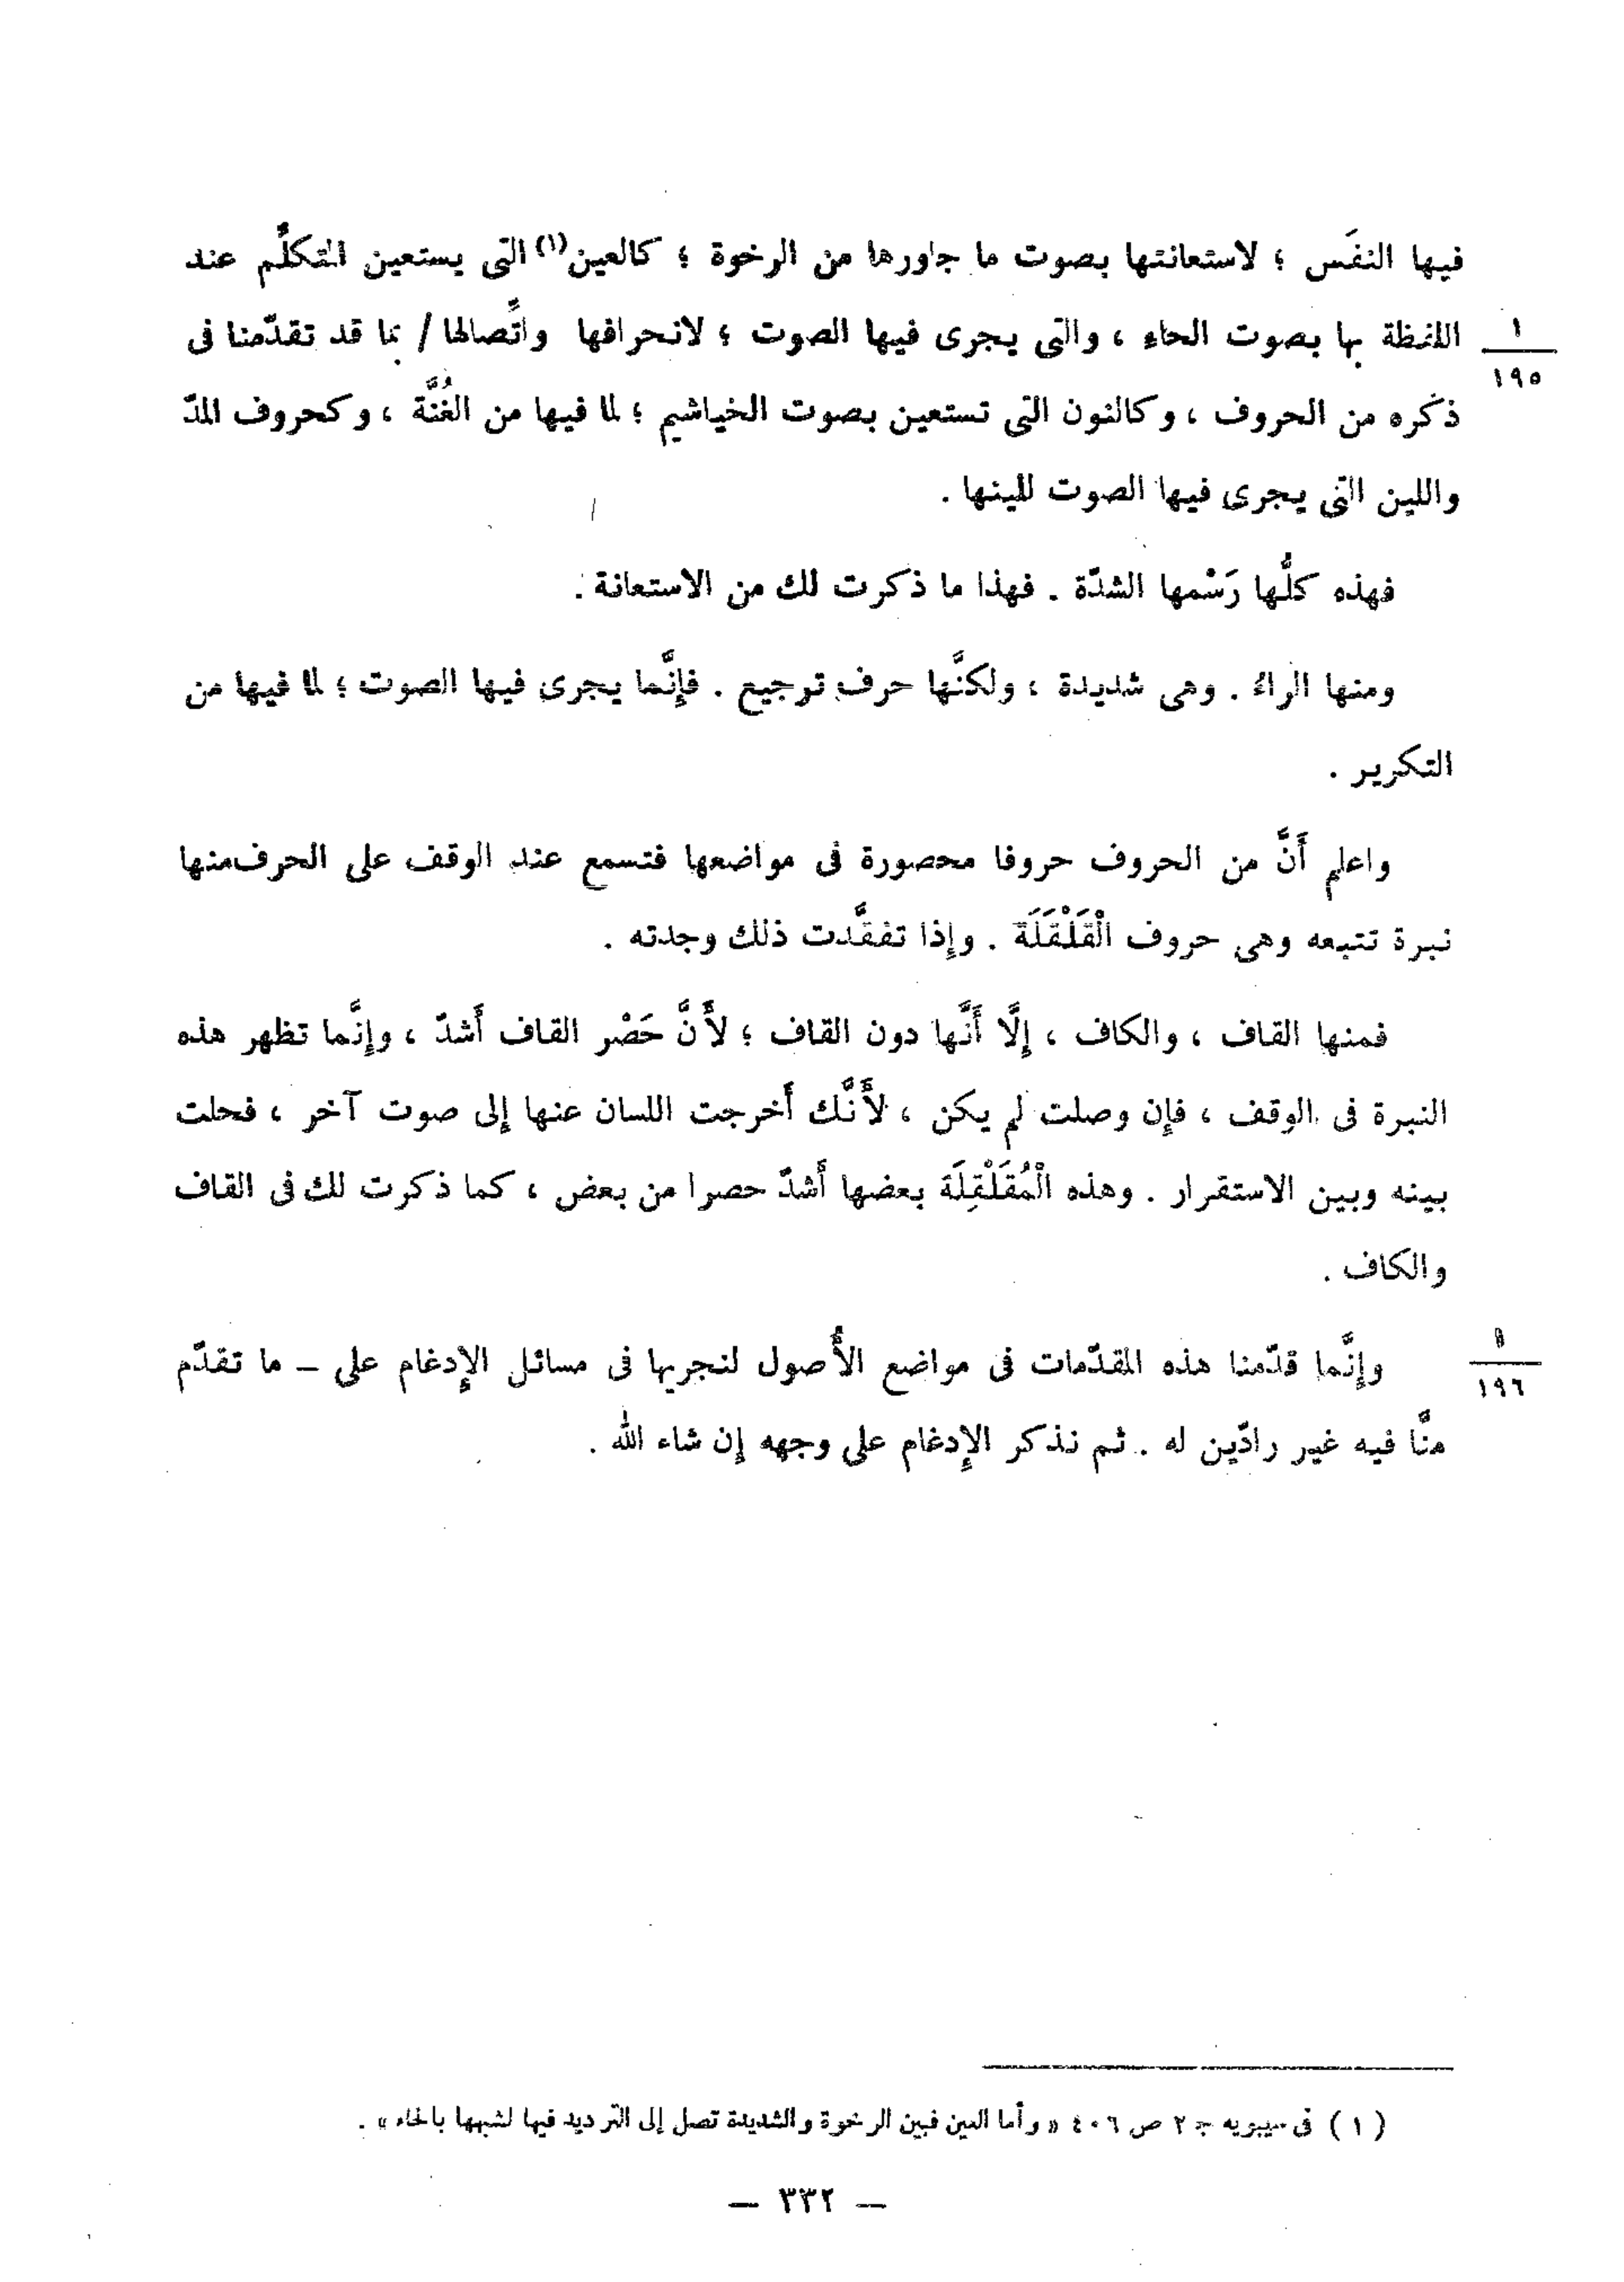 فيها النفَس ؛ لاستعانتها بصوت ما جاورها من الرخوة ؛ كالعين(١) التى يستعين المتكلِّم عند
اللفظة بها بصوت الحاءِ ، والتى يجرى فيها الصوت ؛ لانحرافها واتِّصالها / بما قد تقدّمنا فى
١
١٩٥
ذكره من الحروف ، وكالنون التى تستعين بصوت الخياشيم ؛ لما فيها من الغُنَّة ، وكحروف المدّ
واللين التى يجرى فيها الصوت للينها .
فهذه كلُّها رَسْمها الشدّة . فهذا ما ذكرت لك من الاستعانة .
ومنها الراءُ . وهى شديدة ، ولكنَّها حرف ترجيع . فإِنَّما يجرى فيها الصوت ؛ لما فيها من
التكرير .
واعلم أَنَّ من الحروف حروفا محصورة فى مواضعها فتسمع عند الوقف على الحرف منها
نبرة تتبعه وهى حروف الْقَلْقَلَة . وإِذا تفقَّدت ذلك وجدته .
فمنها القاف ، والكاف ، إِلَّا أَنَّها دون القاف ؛ لأَنَّ حَصْر القاف أَشدّ ، وإِنَّما تظهر هذه
النبرة فى الوقف ، فإِن وصلت لم يكن ، لأَنَّك أَخرجت اللسان عنها إِلى صوت آخر ، فحلت
بينه وبين الاستقرار . وهذه الْمُقَلْقِلَة بعضها أَشدّ حصرا من بعض ، كما ذكرت لك فى القاف
والكاف .
وإِنَّما قدّمنا هذه المقدّمات فى مواضع الأُصول لنجريها فى مسائل الإِدغام على – ما تقدّم
١
١٩٦
منَّا فيه غير رادّين له . ثم نذكر الإِدغام على وجهه إِن شاء الله .
( ١ ) فى سيبويه ج ٢ ص ٤٠٦ « وأما العين فبين الرخوة والشديدة تصل إلى الترديد فيها لشبهها بالحاء » .
— ٣٣٢ —